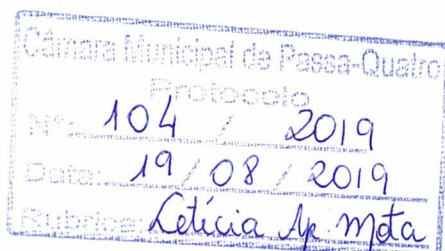 Câmara Municipal de Passa-Quatro
Protocolo
Nº: 104 / 2019
Data: 19 / 08 / 2019
Rubrica: Letícia Ap. Mota